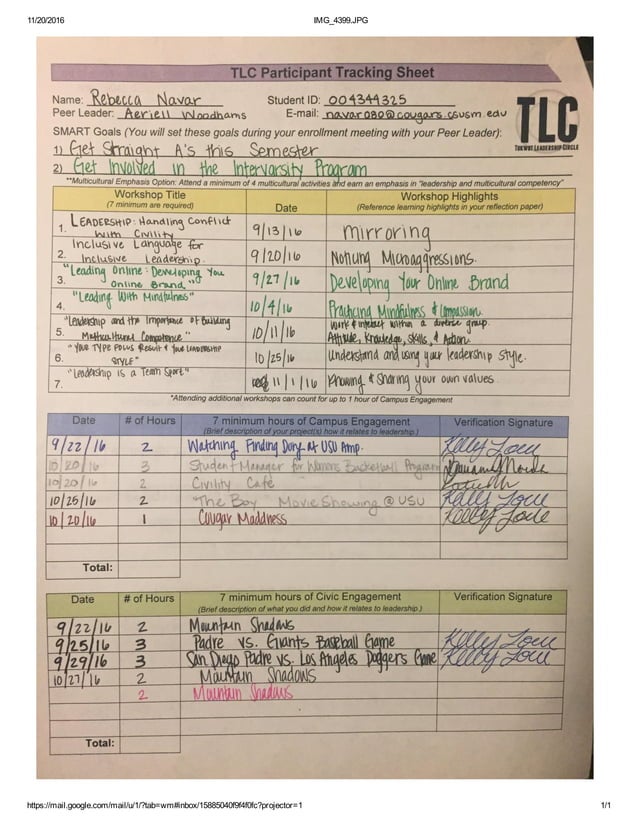 11/20/2016 IMG_4399.JPG
TLC Participant Tracking Sheet
Name: Rebecca Navar Student ID: 004344325
Peer Leader: Aeriell Woodhams E-mail: navar080@cougars.csusm.edu
SMART Goals (You will set these goals during your enrollment meeting with your Peer Leader):
TLC
TUKWUT LEADERSHIP CIRCLE
1) Get Straight A's this Semester
2) Get Involved in the Intervarsity Program
**Multicultural Emphasis Option: Attend a minimum of 4 multicultural activities and earn an emphasis in "leadership and multicultural competency"
Workshop Title Date Workshop Highlights
(7 minimum are required) (Reference learning highlights in your reflection paper)
1. LEADERSHIP: Handling Conflict with Civility 9/13/16 mirroring
2. Inclusive Language for Inclusive Leadership. 9/20/16 Noticing Microaggressions.
3. "Leading Online: Developing You Online Brand" 9/27/16 Developing Your Online Brand
4. "Leading With Mindfulness" 10/4/16 Practicing Mindfulness & Compassion.
5. "Leadership and the Importance of Building Multicultural Competence" 10/11/16 Work & interact within a diverse group. Attitude, Knowledge, Skills, & Action.
6. "YOUR TYPE FOCUS Result & Your LEADERSHIP STYLE" 10/25/16 Understand and using your leadership style.
7. "Leadership is a Team Sport" 11/1/16 Knowing & Sharing your own values
*Attending additional workshops can count for up to 1 hour of Campus Engagement
Date # of Hours 7 minimum hours of Campus Engagement Verification Signature
(Brief description of your project(s) how it relates to leadership.)
9/22/16 2 Watching Finding Dory at USU Amp. Kelly Loui
10/20/16 3 Student Manager for Womens Basketball Program
10/20/16 2 Civility Café
10/25/16 2 "The Boy" Movie Showing @ USU Kelly Loui
10/20/16 1 Cougar Maddness Kelly Loui
Total:
Date # of Hours 7 minimum hours of Civic Engagement Verification Signature
(Brief description of what you did and how it relates to leadership.)
9/22/16 2 Mountain Shadows
9/25/16 3 Padre vs. Giants Baseball Game Kelly Loui
9/29/16 3 San Diego Padre vs. Los Angeles Dodgers Game Kelly Loui
10/27/16 2 Mountain Shadows
2 Mountain Shadows
Total:
https://mail.google.com/mail/u/1/?tab=wm#inbox/15885040f9f4f0fc?projector=1 1/1